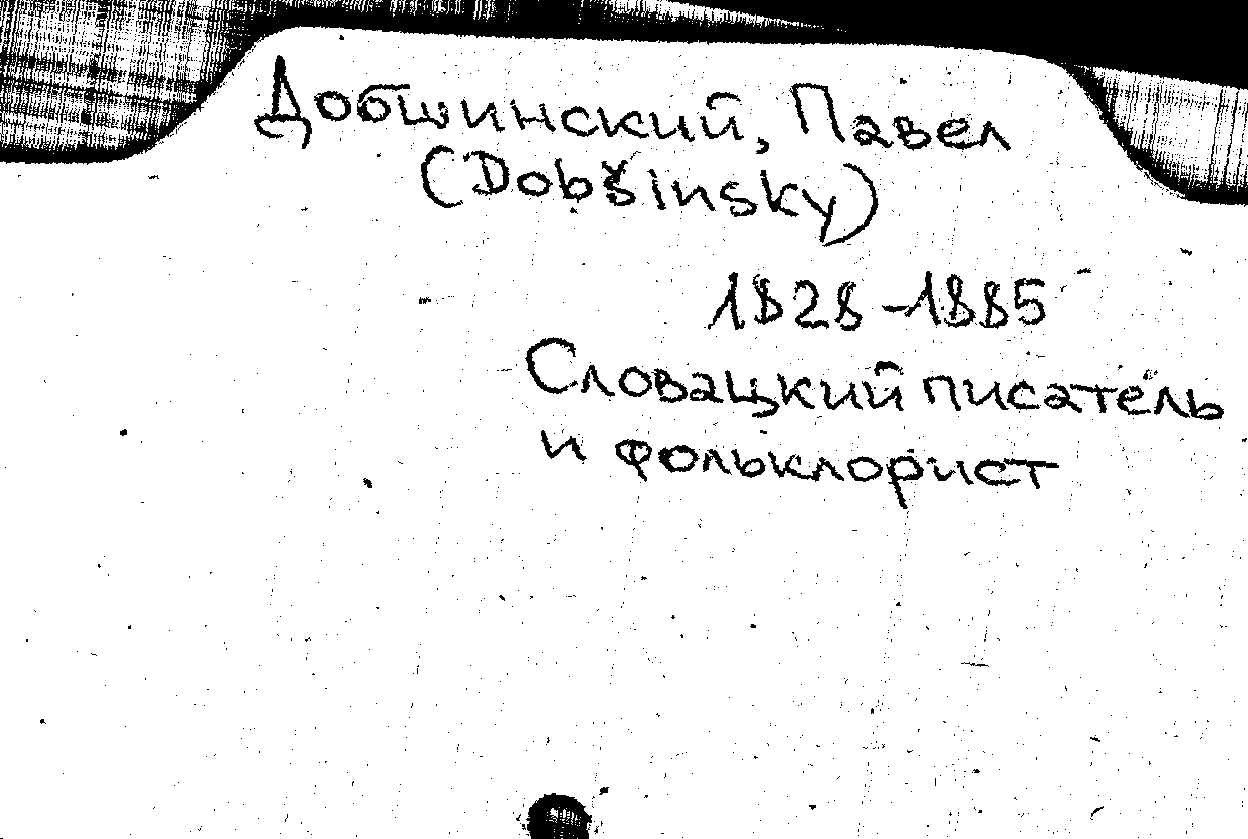 Добшинский, Павел
(Dobšinsky)
1828-1885
Словацкий писатель
и фольклорист